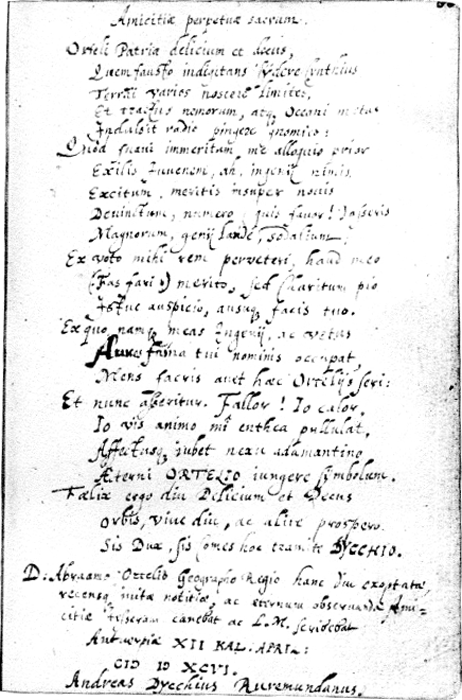 Amicitiæ perpetuæ sacrum.
Orteli Patriæ delicium et decus,
Quem fausto indigitans sydere Cynthius
Terræ varios noscere limites,
Et tractus nemorum, atq; Oceani metas
Indulsit radio pingere gnomico:
Quod suavi immeritum me alloquio prior
Exilis Juvenem, ah, ingenij nimis,
Excitum, meritis insuper novis
Devinctum, numero, quis favor! Asseris
Magnorum, genij laude, sodalium;
Ex voto mihi rem perveteri, haud meo
(Fas fari) merito, sed Charitum pio
Istuc auspicio, ausuq; facis tuo.
Ex quo namq; meas Ingenij, ac vetus
Aures fama tui nominis occupat,
Mens sacris avet hæc Ortelijs seri:
Et nunc asseritur. Fallor! Io calor,
Io vis animo mi enthea pullulat,
Affectusq; iubet nexu adamantino
Æterni ORTELIO iungere symbolum.
Fœlix ergo diu Delicium et Decus
Orbis, vive diu, ac alite prospero
Sis Dux, sis comes hoc tramite DYCCHIO.
D: Abraamo Ortelio Geographo Regio hanc diu exoptatæ,
recensq; initæ notitiæ, ac æternum observandæ Ami-
citiæ tesseram canebat ac L.M. scribebat
Antverpiæ XII KAL: APRIL:
CIƆ IƆ XCVI.
Andreas Dycchius Ruremundanus.